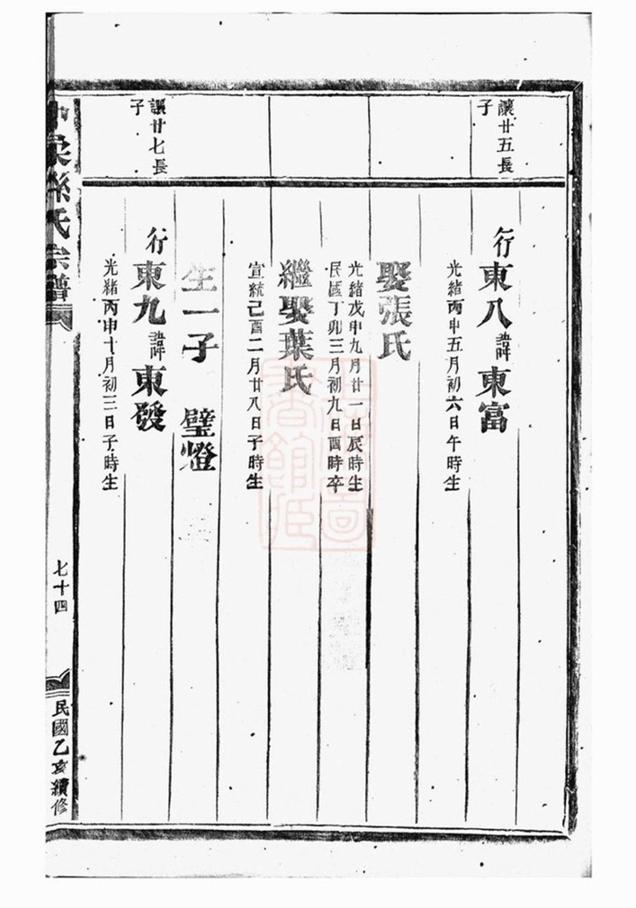 讓廿五長子
行東八諱東富
光緒丙申五月初六日午時生
娶張氏
光緒戊申九月廿一日辰時生
民國丁卯三月初九日酉時卒
繼娶葉氏
宣統己酉二月廿八日子時生
生一子 璧燈
讓廿七長子
行東九諱東發
光緒丙申十月初三日子時生
孫氏宗譜
七十四
民國乙亥續修